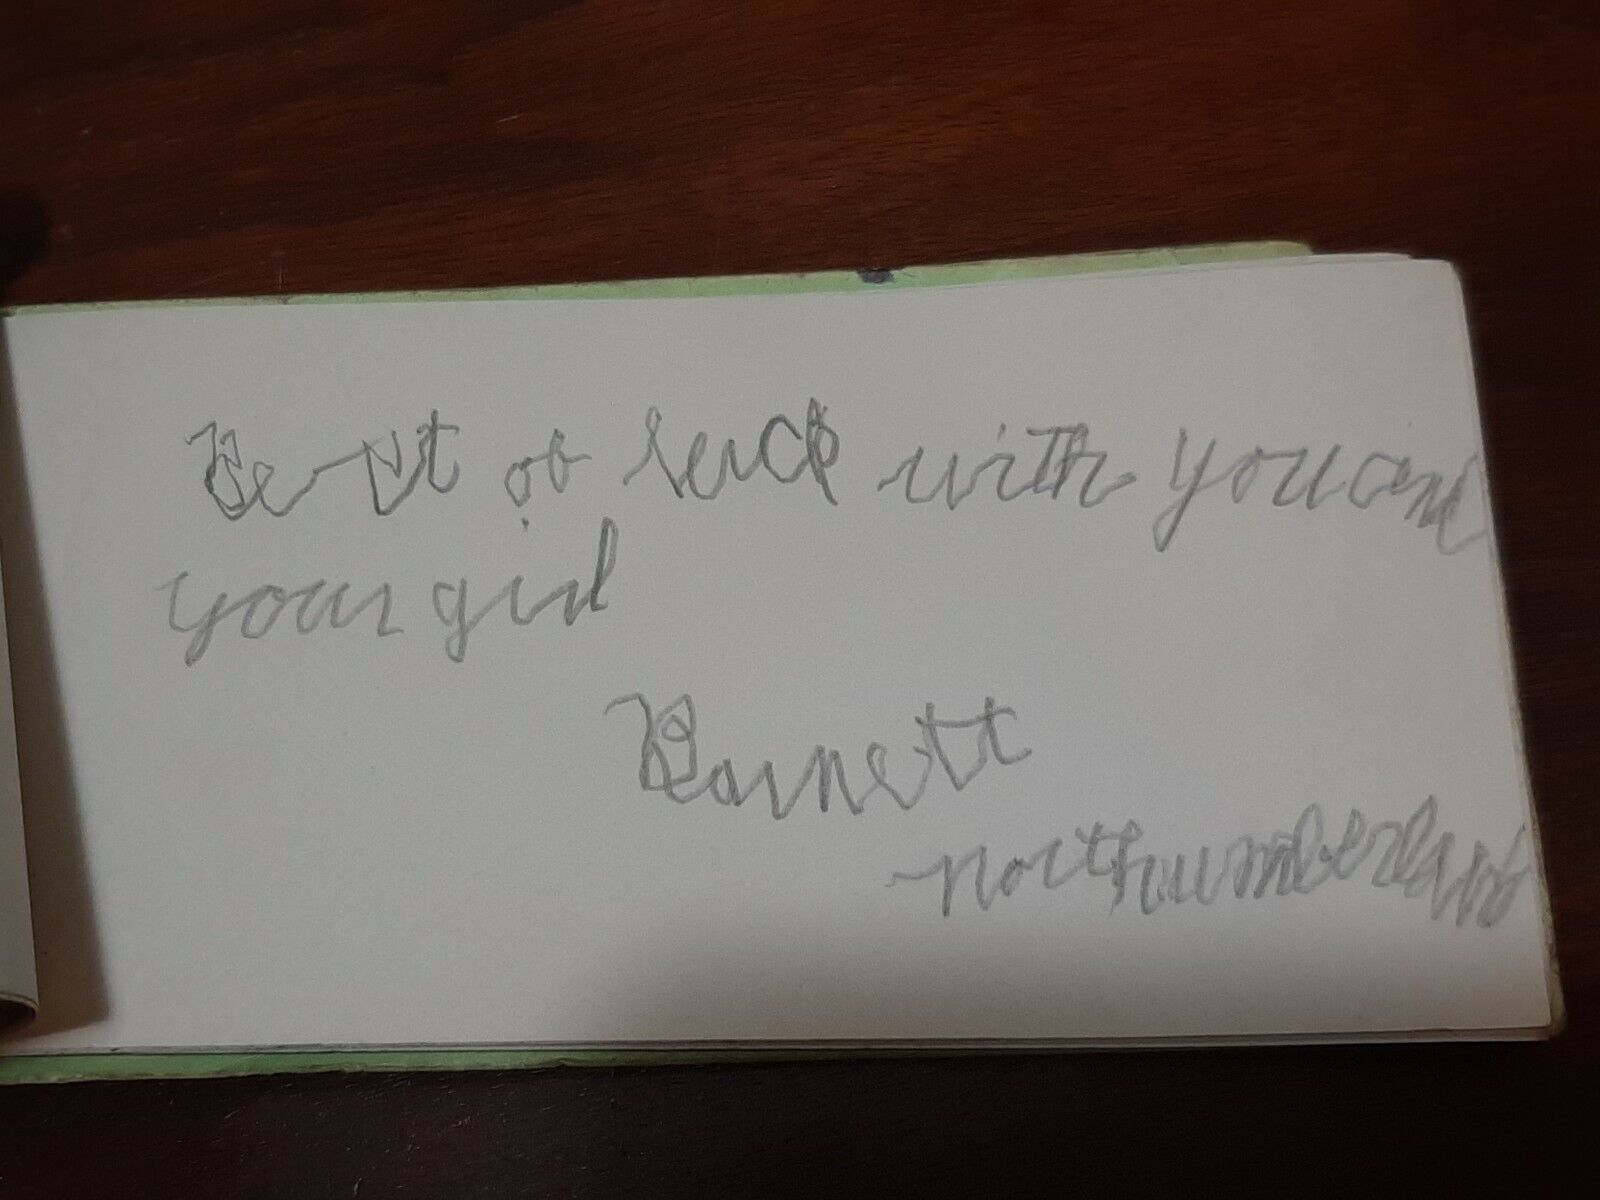 Best of luck with you and
your girl
Barnett
northumberland